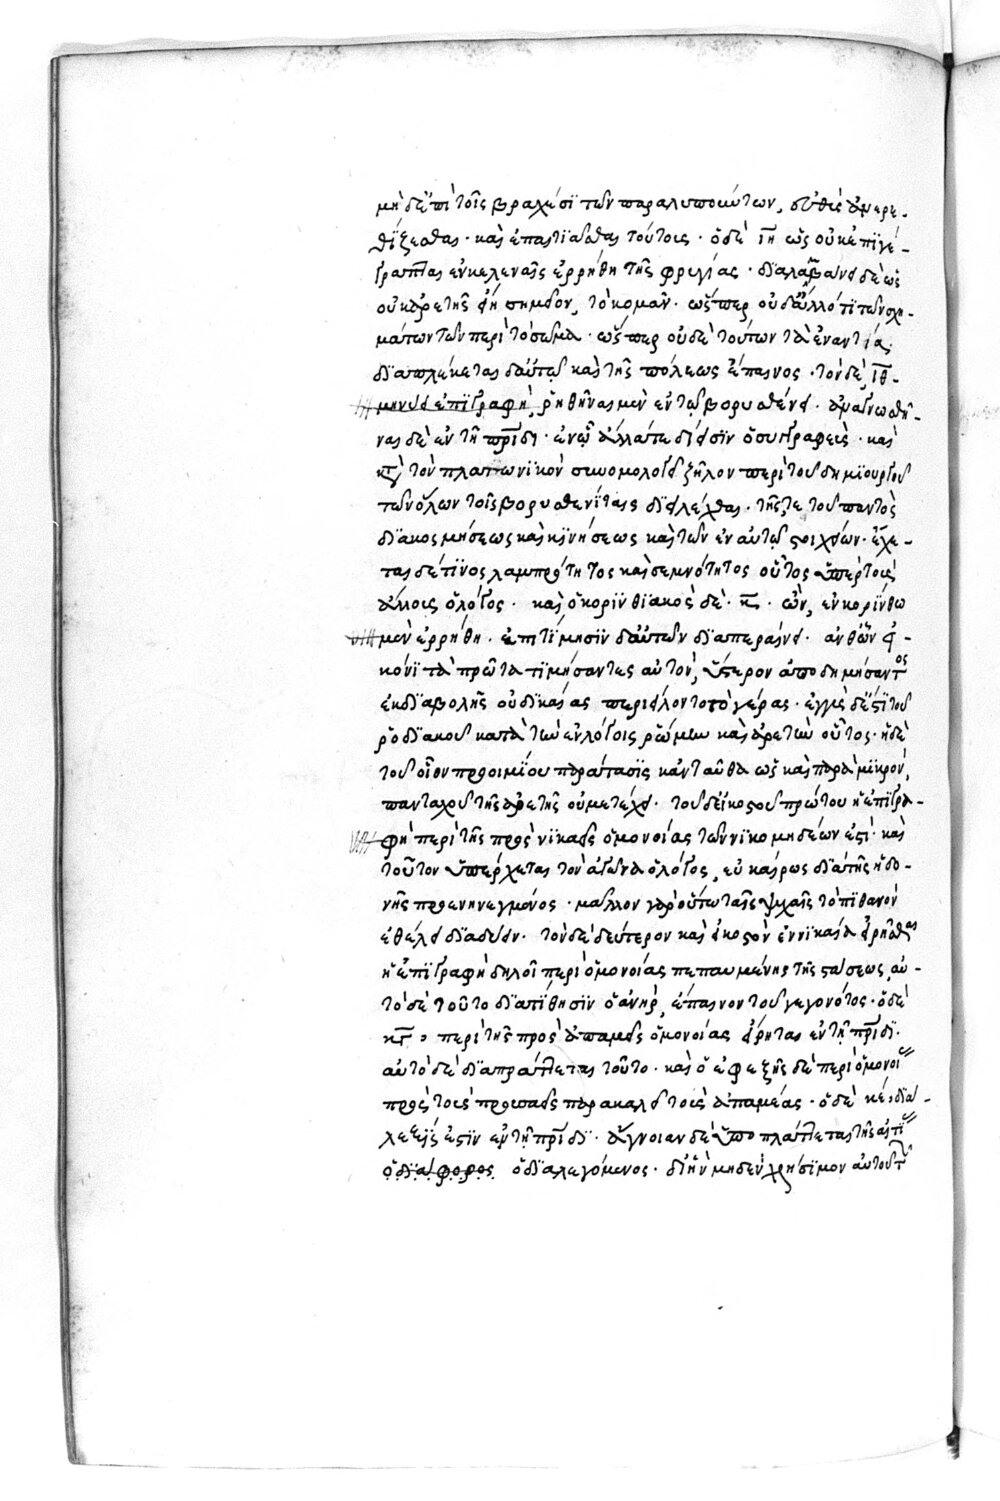 μὴ δὲ ἐπὶ τοῖς βραχέσι τῶν παραλυπούντων, εὐθὺς ἀμερε-
θίζεσθαι· καὶ ἐπαστιᾶσθαι τούτοις· ὁ δὲ ΙΗ ὡς οὐκ ἐπιγέ-
γραπται ἐν κελεναῖς ἐρρήθη τῆς φρυγίας· διαλαμβάνει δὲ ὡς
οὐκ ἀρετῆς εἴη σημεῖον, τὸ κομᾶν· ὥσπερ οὐδ' ἄλλό τι τῶν σχη-
μάτων τῶν περὶ τὸ σῶμα· ὥσπερ οὐδὲ τούτων τὰ ἐναντία·
διαπλέκεται δ' αὐτῷ καὶ τῆς πόλεως ἔπαινος· τὸν δὲ ΙΘ-
μηνύει ἐπιγραφὴ, ῥηθῆναι μὲν ἐν τῷ βορυσθένει· ἀναγνωσθῆ-
ναι δὲ ἐν τῇ πρίδι· ἐν ᾧ ἄλλα τε δίεισιν ὁ συγγραφεὺς· καὶ
κατὰ τὸν πλατωνικὸν συνομολογεῖ ζῆλον περὶ τοῦ δημιουργοῦ
τῶν ὅλων τοῖς βορυσθενίταις διειλέχθαι· τῆς τε τοῦ παντὸς
διακοσμήσεως καὶ κινήσεως καὶ τῶν ἐν αὐτῷ στοιχείων· ἔχε-
ται δέ τινος λαμπρότητος καὶ σεμνότητος οὗτος ὑπὲρ τοὺς
ἄλλους ὁ λόγος· καὶ ὁ κορινθιακὸς δὲ· Κ· ὢν, ἐν κορίνθω
μὲν ἐρρήθη· ἐπιτίμησιν δ' αὐτῶν διαπεραίνει· ἀνθ' ὧν εἰ-
κόνι τὰ πρῶτα τιμήσαντες αὐτὸν, ὕστερον ἀποδημήσαντος
ἐκ διαβολῆς οὐ δικαίας περιείλοντο τὸ γέρας· ἐγγὺς δέ ἐστι τοῦ
ῥοδιακοῦ κατὰ τὴν ἐν λόγοις ῥώμην καὶ ἀρετὴν οὗτος· ἡ δὲ
τοῦ οἷον προοιμίου παράτασις κἀνταῦθα ὡς καὶ παρὰ μικρὸν,
πανταχοῦ τῆς ἀρετῆς οὐ μετέχει· τοῦ δ' εἰκοστοῦ πρώτου ἡ ἐπιγρα-
φὴ περὶ τῆς πρὸς νικαεῖς ὁμονοίας τῶν νικομηδέων ἐστὶ· καὶ
τοῦτον ὑπέρχεται τὸν ἀγῶνα ὁ λόγος, εὐκαίρως διὰ τῆς ἡδο-
νῆς προενηνεγμένος· μᾶλλον γὰρ οὕτω ταῖς ψυχαῖς τὸ πιθανὸν
ἐθέλει διαδύειν· τὸν δὲ δεύτερον καὶ εἰκοστὸν ἐν νικαίᾳ εἰρῆσθαι
ἡ ἐπιγραφὴ δηλοῖ περὶ ὁμονοίας πεπαυμένης τῆς στάσεως, αὐ-
τὸ δὲ τοῦτο διατίθησιν ὁ ἀνὴρ, ἔπαινον τοῦ γεγονότος· ὁ δὲ
ΚΓ, περὶ τῆς πρὸς ἀπαμεῖς ὁμονοίας εἴρηται ἐν τῇ πρίδι·
αὐτὸ δὲ διαπράττεται τοῦτο· καὶ ὁ ἐφεξῆς δὲ περὶ ὁμονοί
πρὸς τοὺς προυσαεῖς παρακαλεῖ τοὺς ἀπαμέας· ὁ δὲ κέ, διά-
λεξίς ἐστιν ἐν τῇ πρίδι· ἄγνοιαν δὲ ὑποπλάττεται τῆς αἰτί
ὁ διάφορος ὁ διαλεγόμενος· δι' ἣν μηδὲν χρήσιμον αὐτοῦ τ